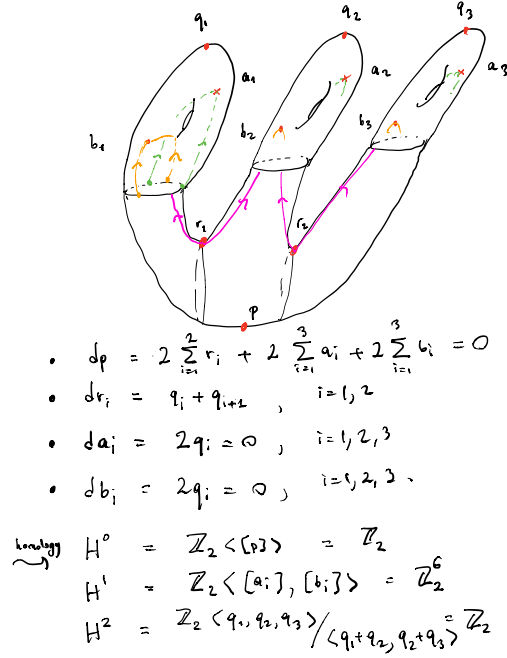 q₁ q₂ q₃
a₁ a₂ a₃
b₁ b₂ b₃
r₁ r₂
p
• dp = 2 ∑_{i=1}^{2} r_i + 2 ∑_{i=1}^{3} a_i + 2 ∑_{i=1}^{3} b_i = 0
• dr_i = q_i + q_{i+1} , i=1,2
• da_i = 2q_i = 0 , i=1,2,3
• db_i = 2q_i = 0 , i=1,2,3.
homology H⁰ = ℤ₂<[p]> = ℤ₂
H¹ = ℤ₂<[a_i], [b_i]> = ℤ₂⁶
H² = ℤ₂<q₁,q₂,q₃>/<q₁+q₂, q₂+q₃> = ℤ₂